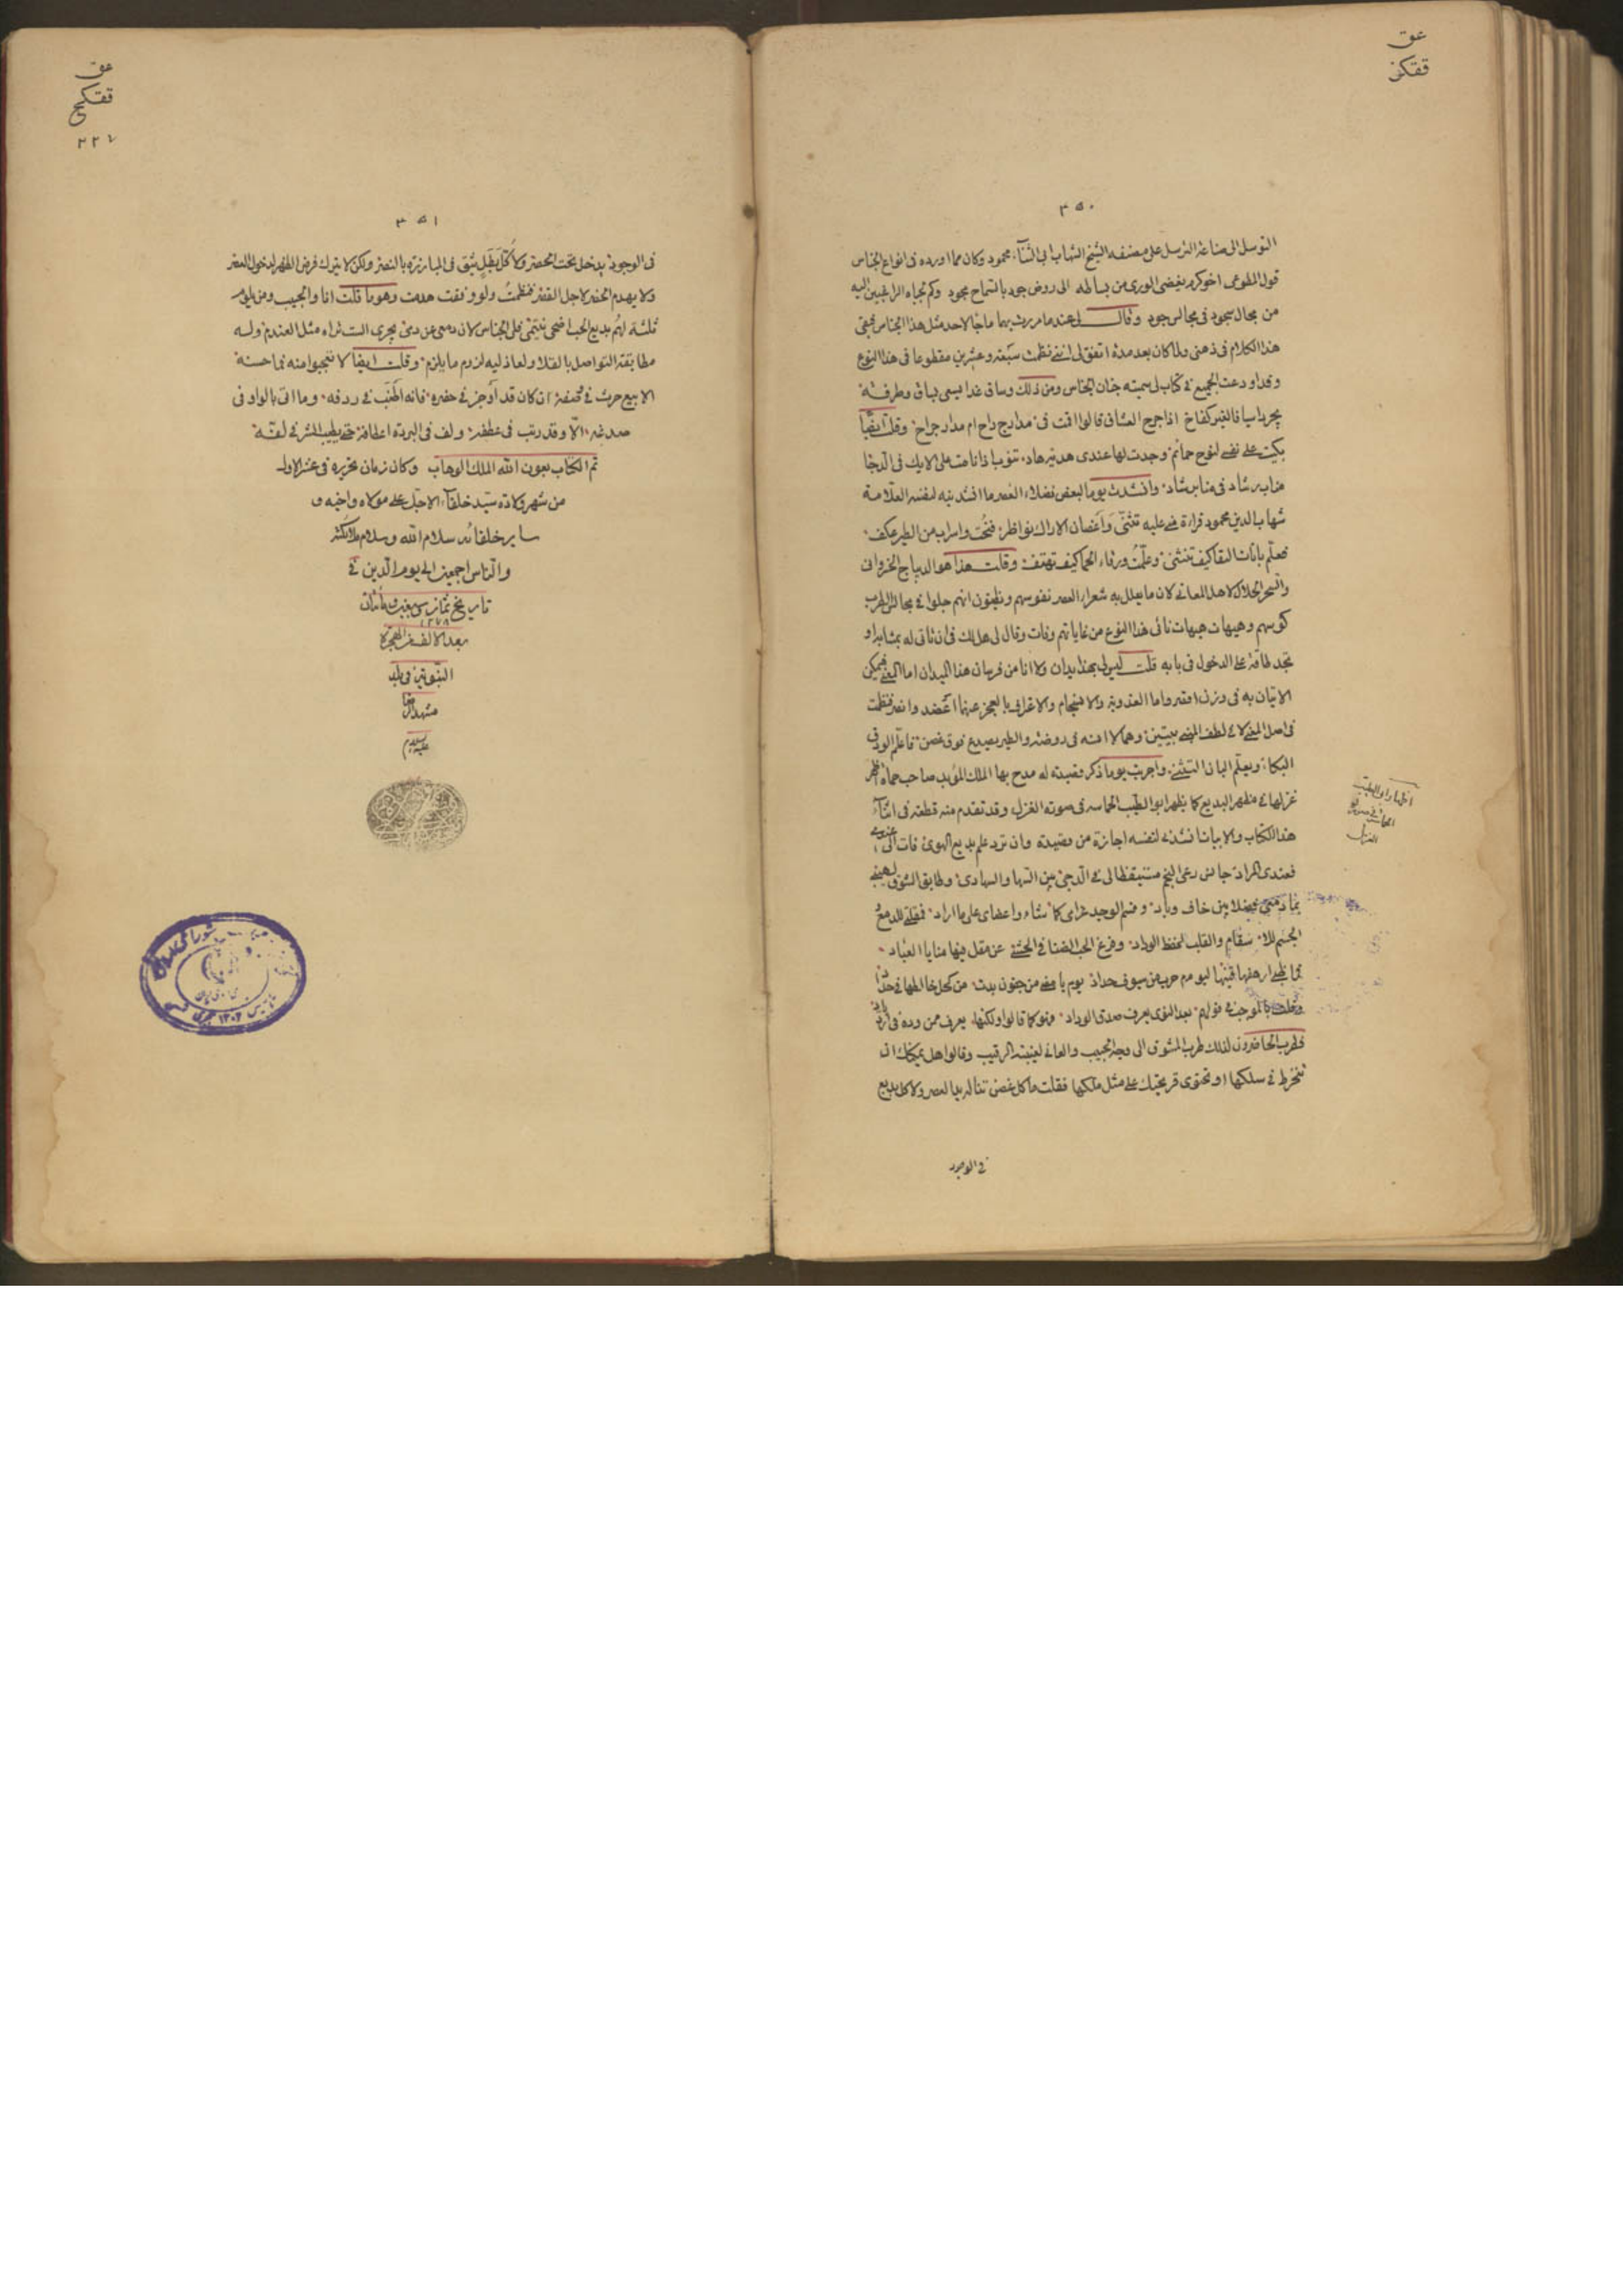 عق
ققكز
٣٥٠
التوسل الى صناعة الترسل على مصنفه الشيخ الشهاب ابى الثناء محمود وكان مما اورده فى انواع الجناس
قول المطوعى اخو كرم يفضى الورى من بساطه الى روض جود بالسماح مجود وكم لجباه الراغبين اليه
من مجال سجود فى مجالس جود وقال لى عندما مررت بهما ما جا لاحد مثل هذا الجناس فبقى
هذا الكلام فى ذهنى ولما كان بعد مدة اتفق لى اننى نظمت سبعة وعشرين مقطوعا فى هذا النوع
وقد اودعت الجميع فى كتاب لى سميته جنان الجناس ومن ذلك وساق غدا يسعى بساق وطرفه
اذا جرح العشاق قالوا اقمت فى مدارج راح ام مدار جراح وقلت ايضا
بكيت على نفسى لنوح حمائم وجدت لها عندى هدية هاد تنوب اذا ناحت على الايك فى الدجا
مناب رشاد فى منابر شاد وانشدت يوما لبعض فضلاء العصر ما انشدنيه لنفسه العلامة
شهاب الدين محمود قراءة منى عليه تثنى واغصان الاراك نواظر فنحت واسراب من الطير عكف
فعلم بانات النقا كيف تنثنى وعلمت ورقاء الحما كيف تهتف وقلت هذا هو الديباج الخسروانى
والسحر الحلال لاهل المعانى لان ما يعلل به شعراء العصر نفوسهم ويظنون انهم جلوا فى مجالس الطرب
كوسهم وهيهات هيهات فى هذا النوع من غاياتهم وفات وقال لى هل لك فى ان تاتى له بمشابه او
تجد طاقة على الدخول فى بابه قلت ليس لى بهذا يدان ولا انا من فرسان هذا الميدان اما المعنى فيمكن
الاتيان به فى وزن اقصر واما العذوبة والانسجام والاعتراف بالعجز عنهما اعضد وانصر فنظمت
فى اصل المعنى لا فى لطف المعنى بيتين وهما لا انسه فى روضة والطير يصدح فوق غصن فاعلم الورق
البكاء ويعلم البان التثنى واجريت يوما ذكر قصيدة له مدح بها الملك المؤيد صاحب حماة اظهر
غزلها فى مظهر البديع كما يظهر ابو الطيب الحماسة فى صورة الغزل وقد تقدم منه قطعة فى اثناء
هذا الكتاب والابيات انشدنى لنفسه اجازة من قصيدة وان ترد علم بديع الهوى فات الى
فعندى المراد رعى النجم مستيقظا لى فى الدجى بين السها والسهاد وطابق الشوق
بماء دمعى فيضلا بين خاف وباد وقسم الوجد غرامى كما شاء واعضاى على ما اراد فمقلتى للدمع
الجسم للاسقام والقلب لحفظ الوداد وفرغ الحب الضنا فى الحشى عن مقل فيها منايا العباد
فما ظبى ارهفها قينها ليوم حرب من سيوف حداد يوما بامضى من جفون بدت من كحل
وقلت بالموجب فى قولهم بعد النوى يعرف صدق الوداد وهو كما قالوا ولكنها يعرف ممن وده فى
فطرب الحاضرون لذلك طرب المشوق الى وجه الحبيب والعانى لغيبة الرقيب وقالوا هل يمكنك ان
تنخرط فى سلكها او تحتوى قريحتك على مثل ملكها فقلت ما كل غصن تناله يد العصر ولا كل بديع
فى الوجود
عق
ققكح
٣٥١
فى الوجود يدخل تحت الحصر ولا كل بطل يثق فى المبارزة بالنصر ولكن لا يترك فرض الظهر لدخول العصر
ولا يهدم الحصر لاجل القصر فنظمت ولو وفقت هدمت وهو ما قلت انا والحبيب ومن يلوم
ثلثة لهم بديع الحب اضحى ينتمى فلى الجناس لان دمعى عن دمى يجرى الست تراه مثل العندم وله
مطابقة التواصل بالقلا ولعاذليه لزوم ما يلزم وقلت ايضا لا تعجبوا منه فما حسنه
الا بديع حرت فى وصفه ان كان قد اوجز فى خصره فانه اطنب فى ردفه وما اتى بالواو فى
صدغه الا وقد رتب فى عطفه ولف فى البردة اعطافه حتى يطيب النشر فى لفه
تم الكتاب بعون الله الملك الوهاب وكان زمان تحريره فى عشر الاول
من شهر ولادة سيد خلفاء الاجل على مولاه واخيه و
ساير خلفائه سلام الله وسلام ملائكته
والناس اجمعين الى يوم الدين فى
تاريخ ثمان سبعين ومأتان
١٢٧٨
بعد الالف من الهجرة
النبوية فى بلد
مشهد الرضا
عليه السلام